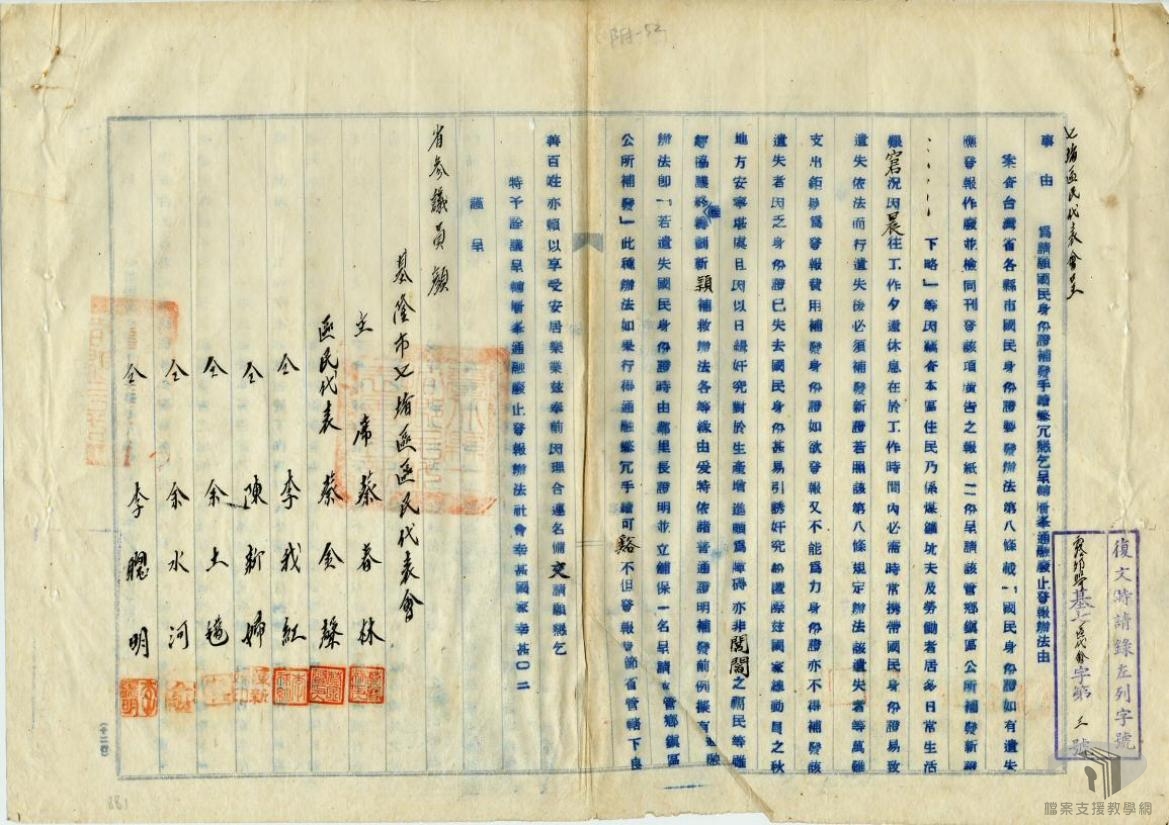 附-52
七堵區民代表會呈
復文時請錄左列字號
基七區代會字第三號
事由 為請願國民身份證補發手續繁冗懇乞呈轉層峯通融廢止登報辦法由
案查台灣省各縣市國民身份證發辦法第八條載「國民身份證如有遺失
應登報作廢並檢同刊登該項廣告之報紙二份呈請該管鄉鎮區公所補發新證
、、、、、下略」等因竊查本區住民乃係煤鑛坑夫及勞働者居多日常生活
艱窘況因晨往工作夕還休息在於工作時間內必需時常携帶國民身份證易致
遺失依法而行遺失後必須補發新證若照該第八條規定辦法該遺失者等萬難
支出鉅額為登報費用補發身份證如欲登報又不能為力身份證亦不得補發該
遺失者因乏身份證已失去國民身份甚易引誘奸究紛擾際玆國家總動員之秋
地方安寧堪虞且因以日緝奸究對於生產增進頗為障碍亦非閭閻之小民等雖
經協議務得嶄新穎補救辦法各等緣由爰特依諸普通證明補發前例擬有通融
辦法即「若遺失國民身份證時由鄰里長證明並立鋪保一名呈請該管鄉鎮區
公所補發」此種辦法如果行得通融繁冗手續可豁不但登報費節省管轄下良
善百姓亦賴以享受安居樂業玆奉前因理合連名備文請願懇乞
特予詮議呈轉層峯通融廢止登報辦法社會幸甚國家幸甚
謹呈
省參議員顏
基隆市七堵區區民代表會
主席 蔡春林
區民代表 蔡金聲
仝 李我紅
仝 陳新婦
仝 余土
仝 余水河
仝 李聰明
881
檔案支援教學網